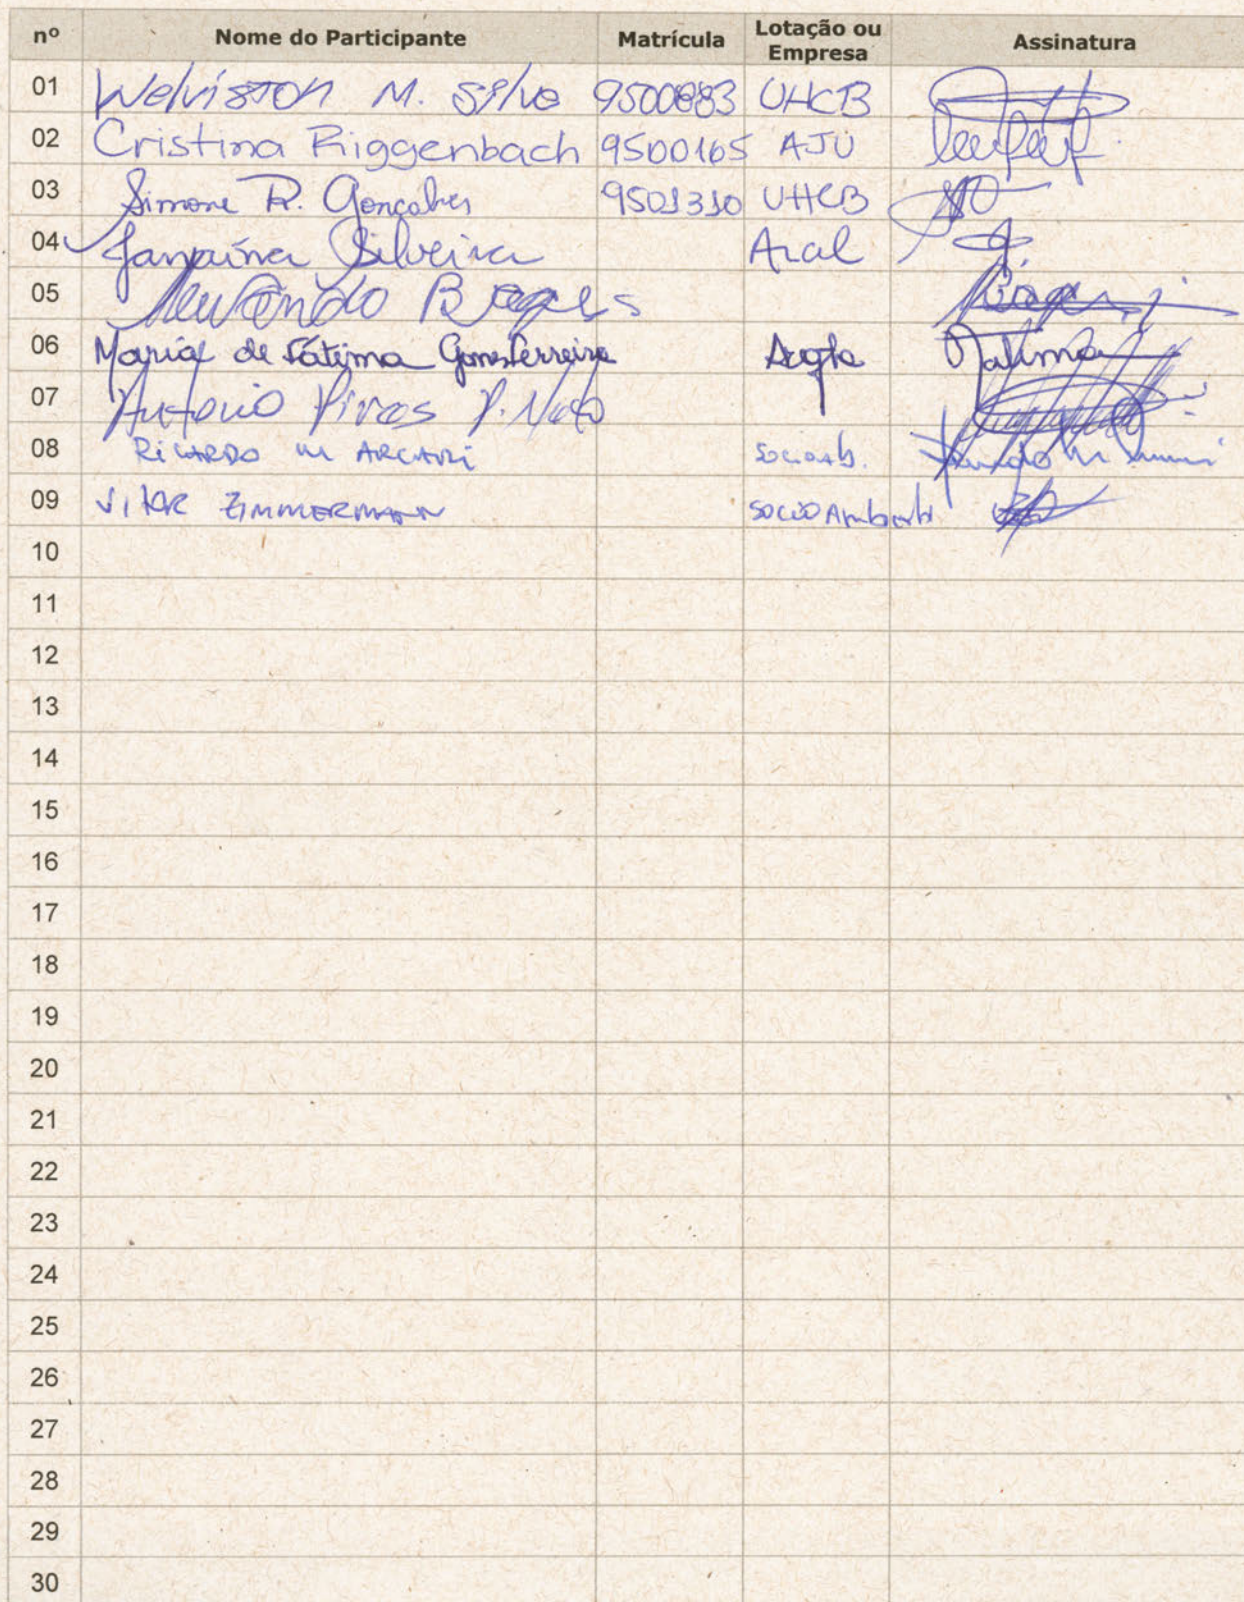 nº Nome do Participante Matrícula Lotação ou Empresa Assinatura
01 Welviston M. Silva 9500883 UHCB
02 Cristina Riggenbach 9500165 AJU
03 Simone R. Gonçalves 9501310 UHCB
04 Janaína Silveira Aral
05 Borges
06 Maria de Fátima Gomes Ferreira Fatima
07 Antonio P. Neto
08 RICARDO M ARCARI Socioamb.
09 VITOR ZIMMERMANN Socio Ambiental
10
11
12
13
14
15
16
17
18
19
20
21
22
23
24
25
26
27
28
29
30